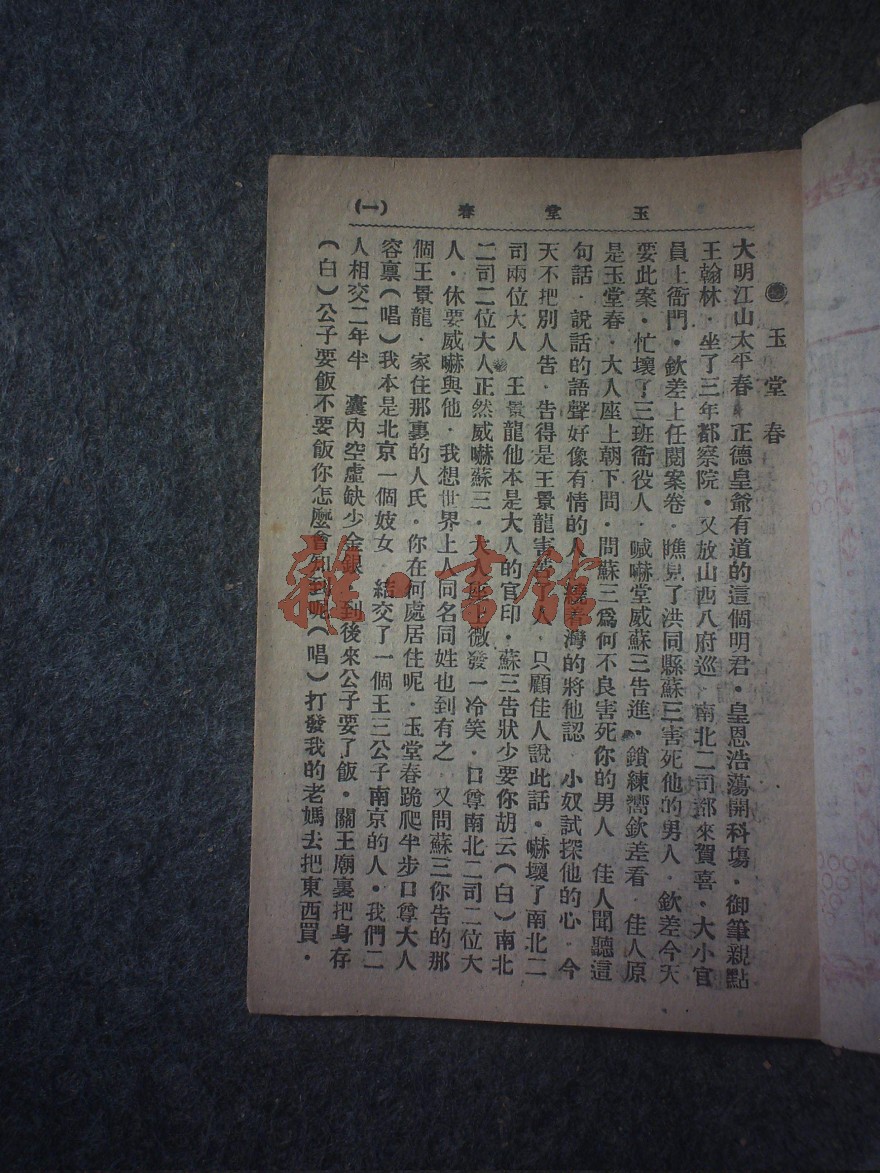 玉堂春 (一)
玉堂春
大明江山太平春 正德皇爺有道的這個明君·皇恩浩蕩開科塲·御筆親點
王翰林·坐了三年都察院·又放山西八府巡 南北二司都來賀喜·大小官
員上衙門·欽差上任閱案卷·瞧見了洪同縣蘇三害死他的男人 欽差今天
要此案·忙壞了三班衙役人·喊嚇堂威蘇三告進·鎖練嚮欽差看 佳人原
是玉堂春·大人座上朝下問·問蘇三爲何不良害死你的男人 佳人聞聽這
句話·說話的語聲好像有情的人 繞着灣的將他認 小奴試探他的心·今
天不把別人告·告得是王景龍害 人 只顧佳人說此話·嚇壞了南北二
司兩位大人 王景龍他本是大人的官印·蘇三告狀少要你胡云(白)南北
二司二位大人正然威嚇蘇三·大人座上微發一冷笑·口尊南北二司二位大
人·休要威嚇與他·我想世界上人同名同姓也到有之 又問蘇三你告的那
個王景龍·家住那裏的人氏·你在何處居住呢·玉堂春跪爬半步口尊大人
容禀(唱)我本是北京一個妓女 結交了一個王三公子南京的人·我們二
人相交二年半 囊內空虛缺少金銀·到後來公子要了飯·關王廟裏把身存
(白)公子要飯不要飯你怎麼會知到呢(唱)打發我的老媽去把東西買·
雜·書館